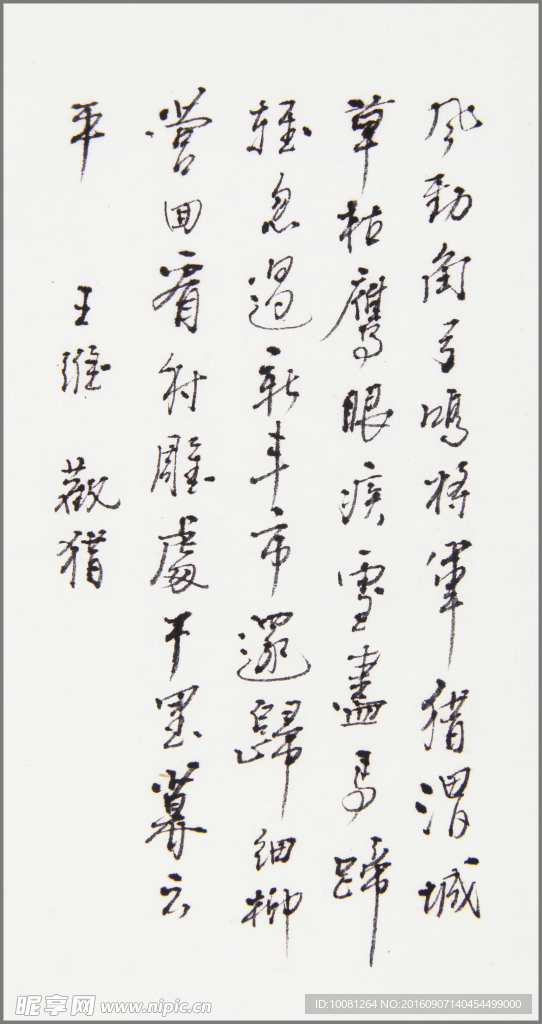 风劲角弓鸣将军猎渭城
草枯鹰眼疾雪盡马蹄
轻忽過新丰市還歸细柳
营回看射雕處千里暮云
平 王维 觀猎
昵享网 www.nipic.cn
ID:10081264 NO:20160907140454499000